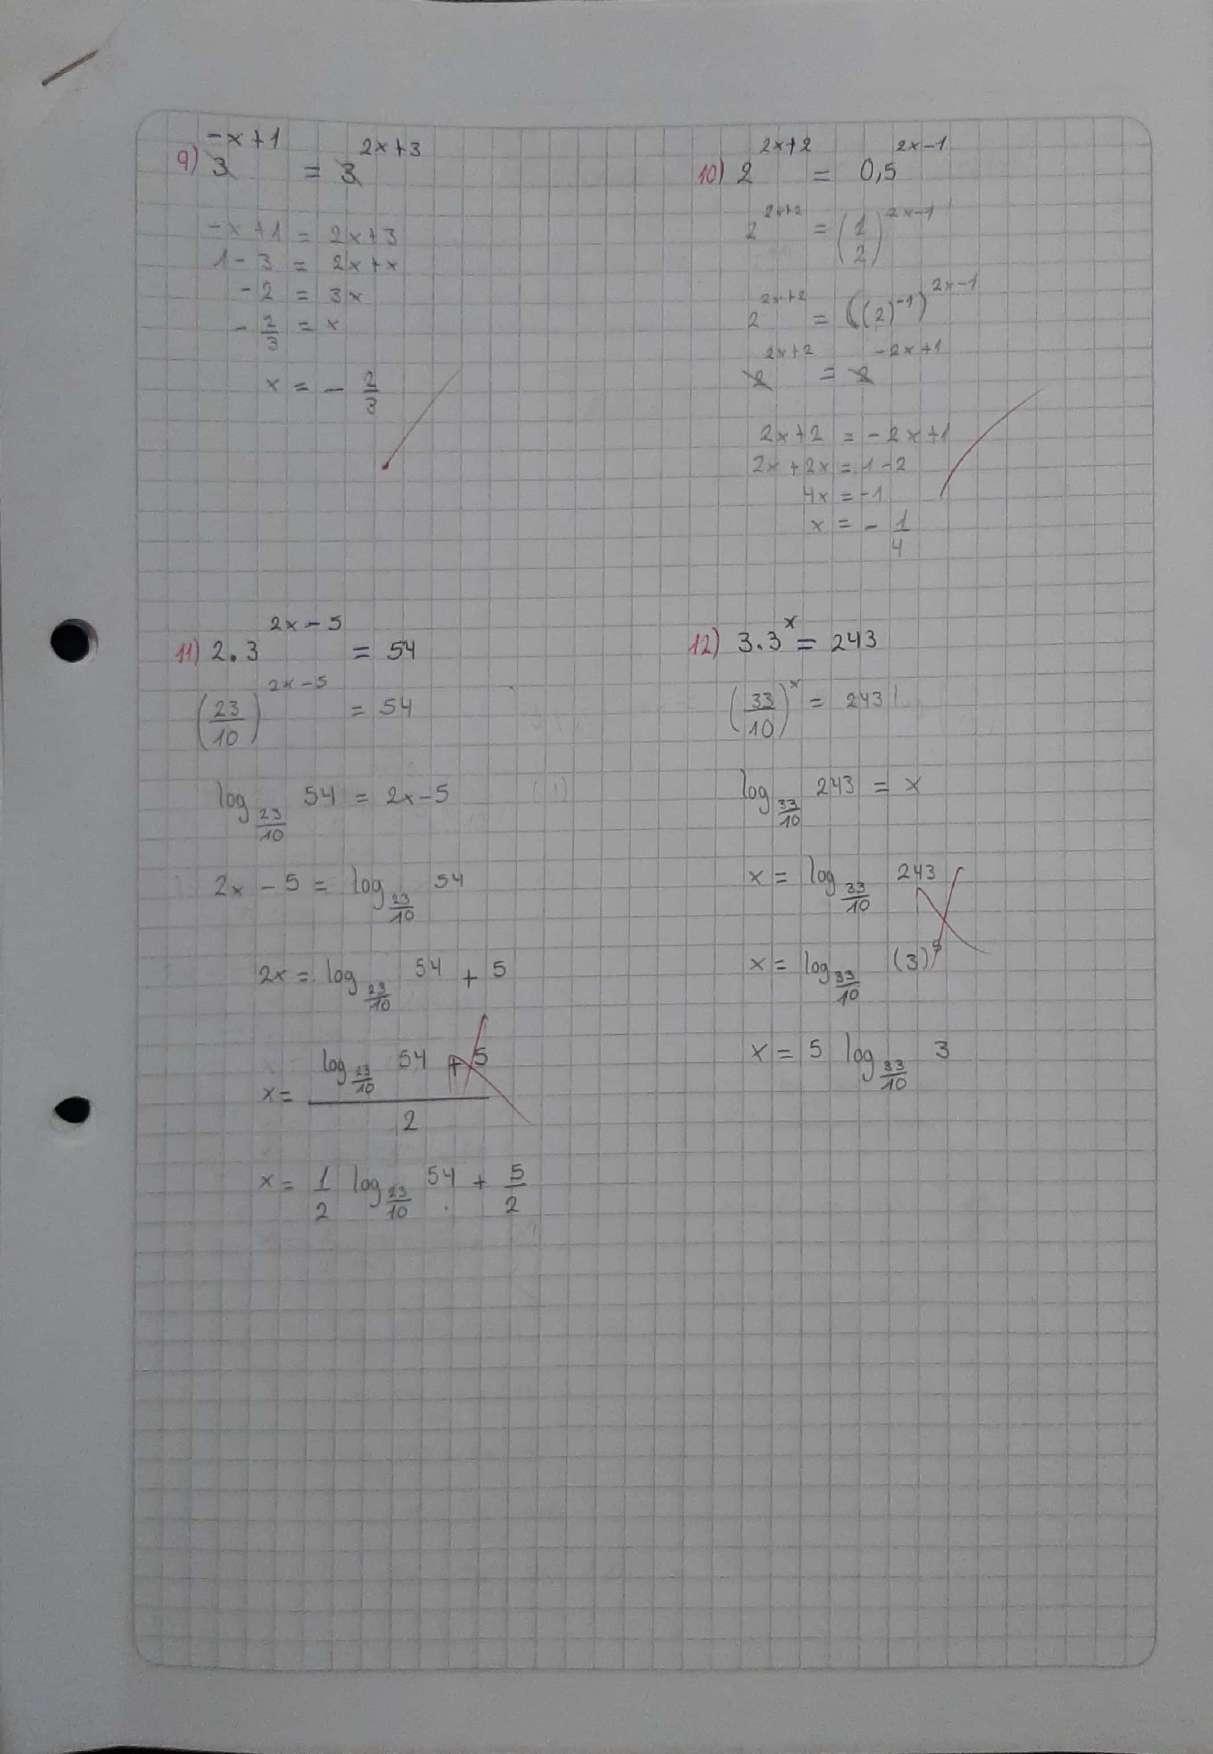 9) 3^(-x+1) = 3^(2x+3)
-x+1 = 2x+3
1-3 = 2x+x
-2 = 3x
-2/3 = x
x = -2/3
10) 2^(2x+2) = 0,5^(2x-1)
2^(2x+2) = (1/2)^(2x-1)
2^(2x+2) = ((2)^-1)^(2x-1)
2^(2x+2) = 2^(-2x+1)
2x+2 = -2x+1
2x+2x = 1-2
4x = -1
x = -1/4
11) 2.3^(2x-5) = 54
(23/10)^(2x-5) = 54
log_(23/10) 54 = 2x-5
2x-5 = log_(23/10) 54
2x = log_(23/10) 54 + 5
x = (log_(23/10) 54 + 5)/2
x = 1/2 log_(23/10) 54 + 5/2
12) 3.3^x = 243
(33/10)^x = 243
log_(33/10) 243 = x
x = log_(33/10) 243
x = log_(33/10) (3)^5
x = 5 log_(33/10) 3